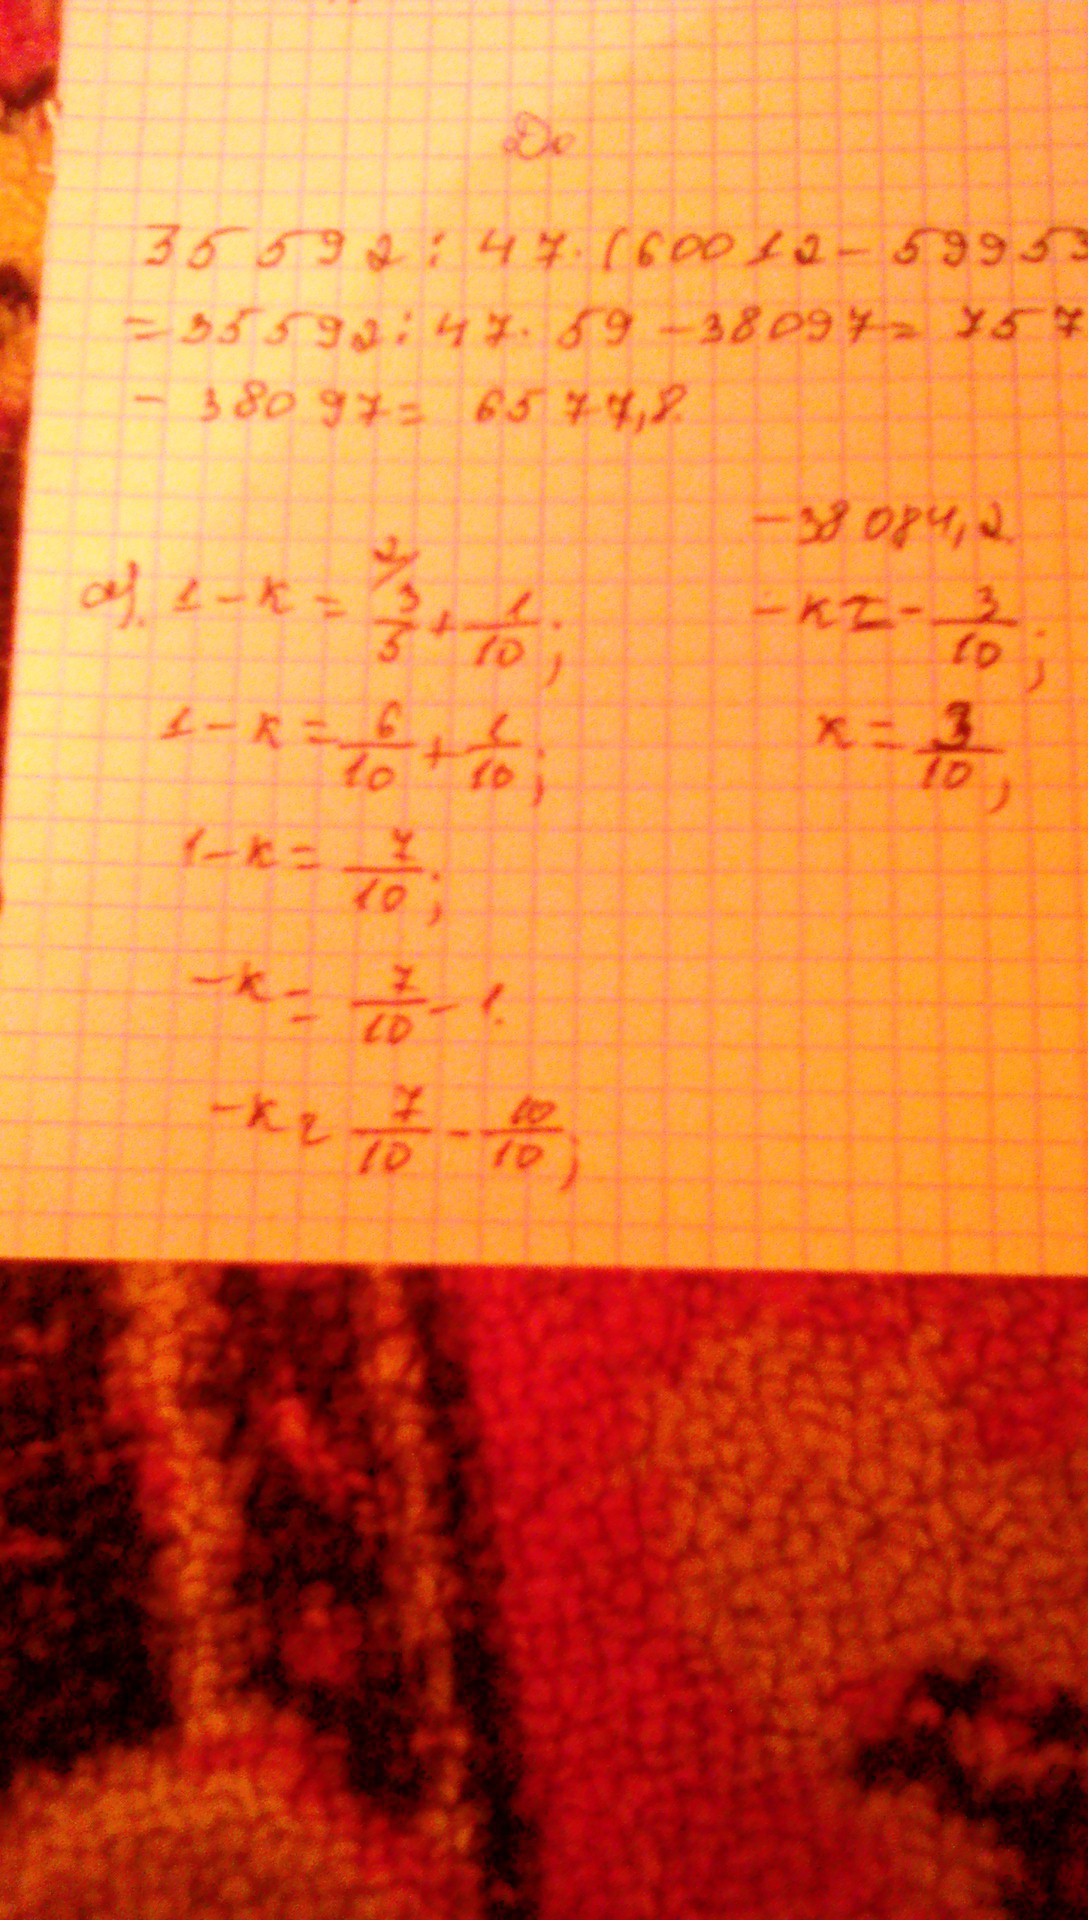 35592:47·(60012-59953
=35592:47·59-38097=757
-38097=6577,8.
-38084,2
а). 1-к=3/5+1/10;
1-к=6/10+1/10;
1-к=7/10;
-к=7/10-1.
-к=7/10-10/10;
-к=-3/10;
к=3/10;